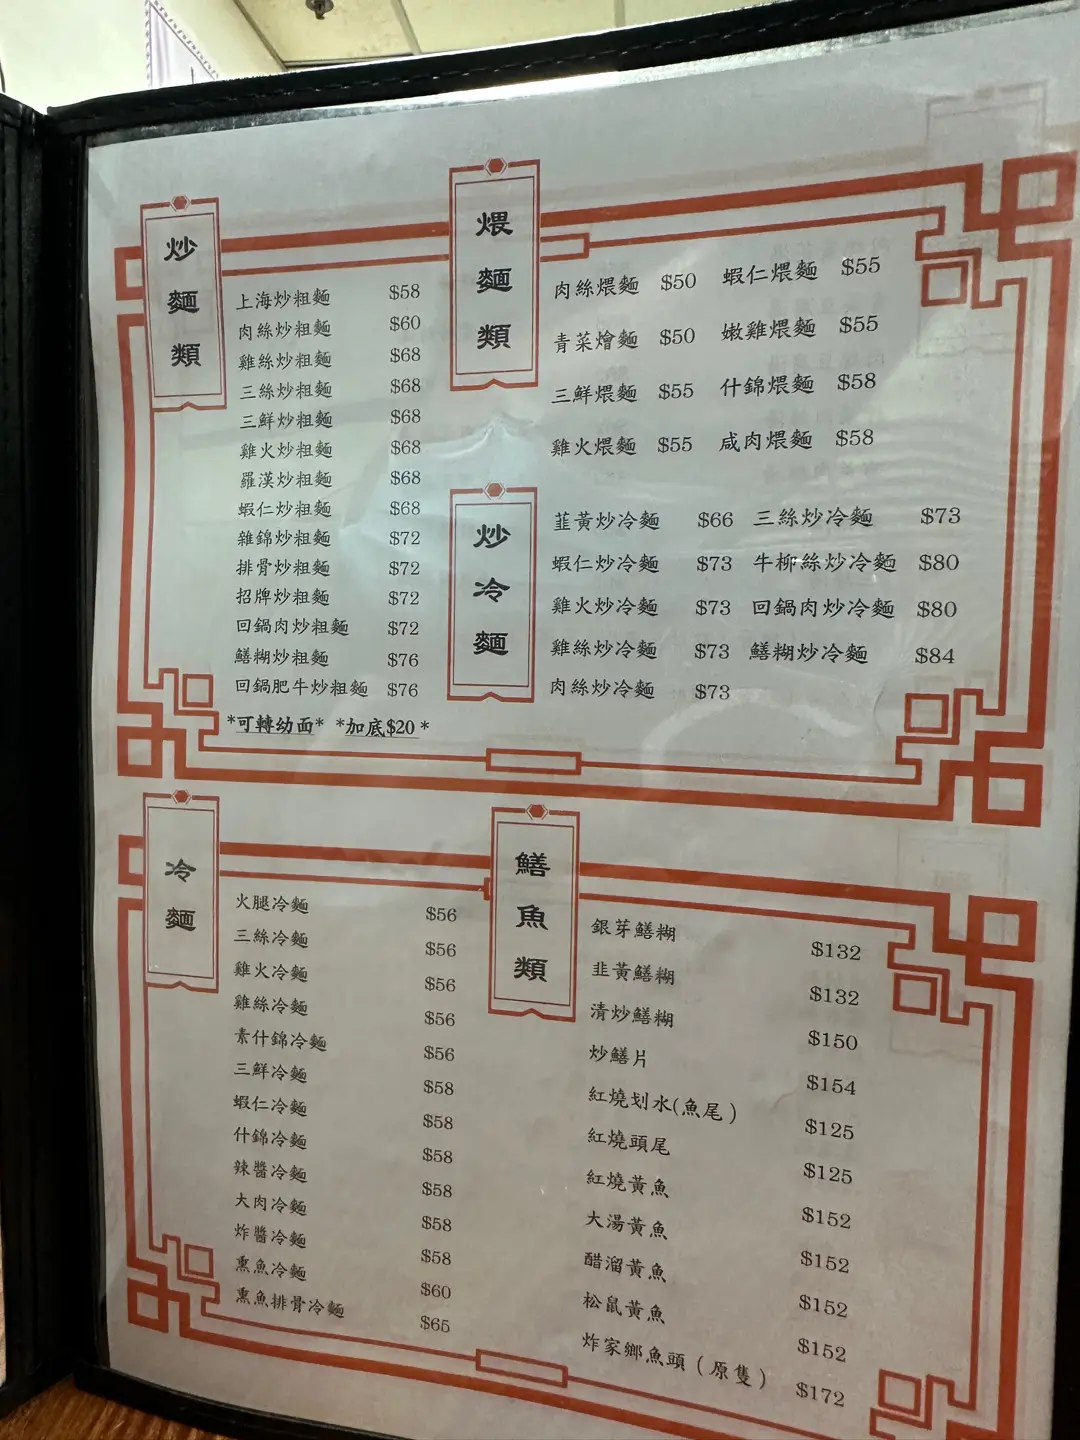 炒麵類
上海炒粗麵 $58
肉絲炒粗麵 $60
雞絲炒粗麵 $68
三絲炒粗麵 $68
三鮮炒粗麵 $68
雞火炒粗麵 $68
羅漢炒粗麵 $68
蝦仁炒粗麵 $68
雜錦炒粗麵 $72
排骨炒粗麵 $72
招牌炒粗麵 $72
回鍋肉炒粗麵 $72
鱔糊炒粗麵 $76
回鍋肥牛炒粗麵 $76
*可轉幼面* *加底$20*
煨麵類
肉絲煨麵 $50 蝦仁煨麵 $55
青菜燴麵 $50 嫩雞煨麵 $55
三鮮煨麵 $55 什錦煨麵 $58
雞火煨麵 $55 咸肉煨麵 $58
炒冷麵
韮黃炒冷麵 $66 三絲炒冷麵 $73
蝦仁炒冷麵 $73 牛柳絲炒冷麵 $80
雞火炒冷麵 $73 回鍋肉炒冷麵 $80
雞絲炒冷麵 $73 鱔糊炒冷麵 $84
肉絲炒冷麵 $73
冷麵
火腿冷麵 $56
三絲冷麵 $56
雞火冷麵 $56
雞絲冷麵 $56
素什錦冷麵 $56
三鮮冷麵 $58
蝦仁冷麵 $58
什錦冷麵 $58
辣醬冷麵 $58
大肉冷麵 $58
炸醬冷麵 $58
熏魚冷麵 $60
熏魚排骨冷麵 $65
鱔魚類
銀芽鱔糊 $132
韭黃鱔糊 $132
清炒鱔糊 $150
炒鱔片 $154
紅燒划水(魚尾) $125
紅燒頭尾 $125
紅燒黃魚 $152
大湯黃魚 $152
醋溜黃魚 $152
松鼠黃魚 $152
炸家鄉魚頭(原隻) $172